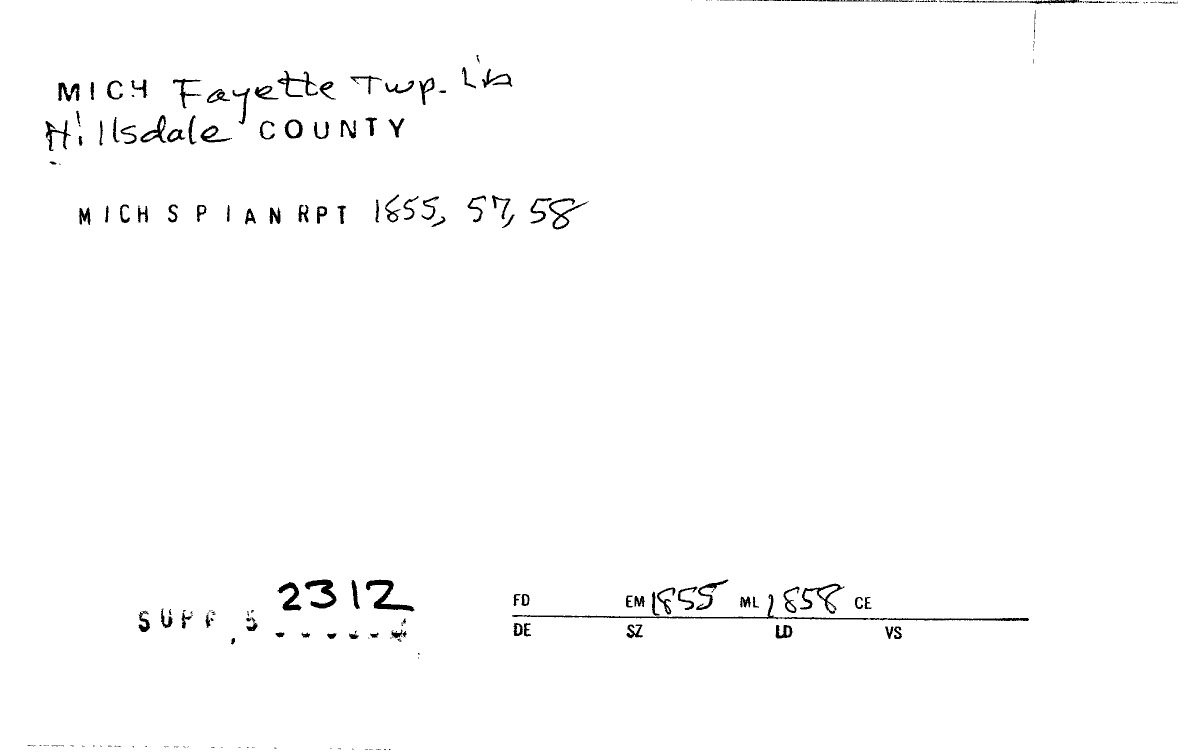 MICH Fayette Twp. Lib
Hillsdale COUNTY
MICH S P I AN RPT 1855, 57, 58
2312
SUPP. 5
FD EM 1855 ML 1858 CE
DE SZ LD VS